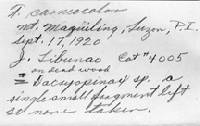 T. caraocolor
Mt. Maquiling, Luzon, P.I.
Sept. 17, 1920
J. Sibunao Cat # 4005
on dead wood
= Dacryopinax sp. a
single small fragment left
so none taken.